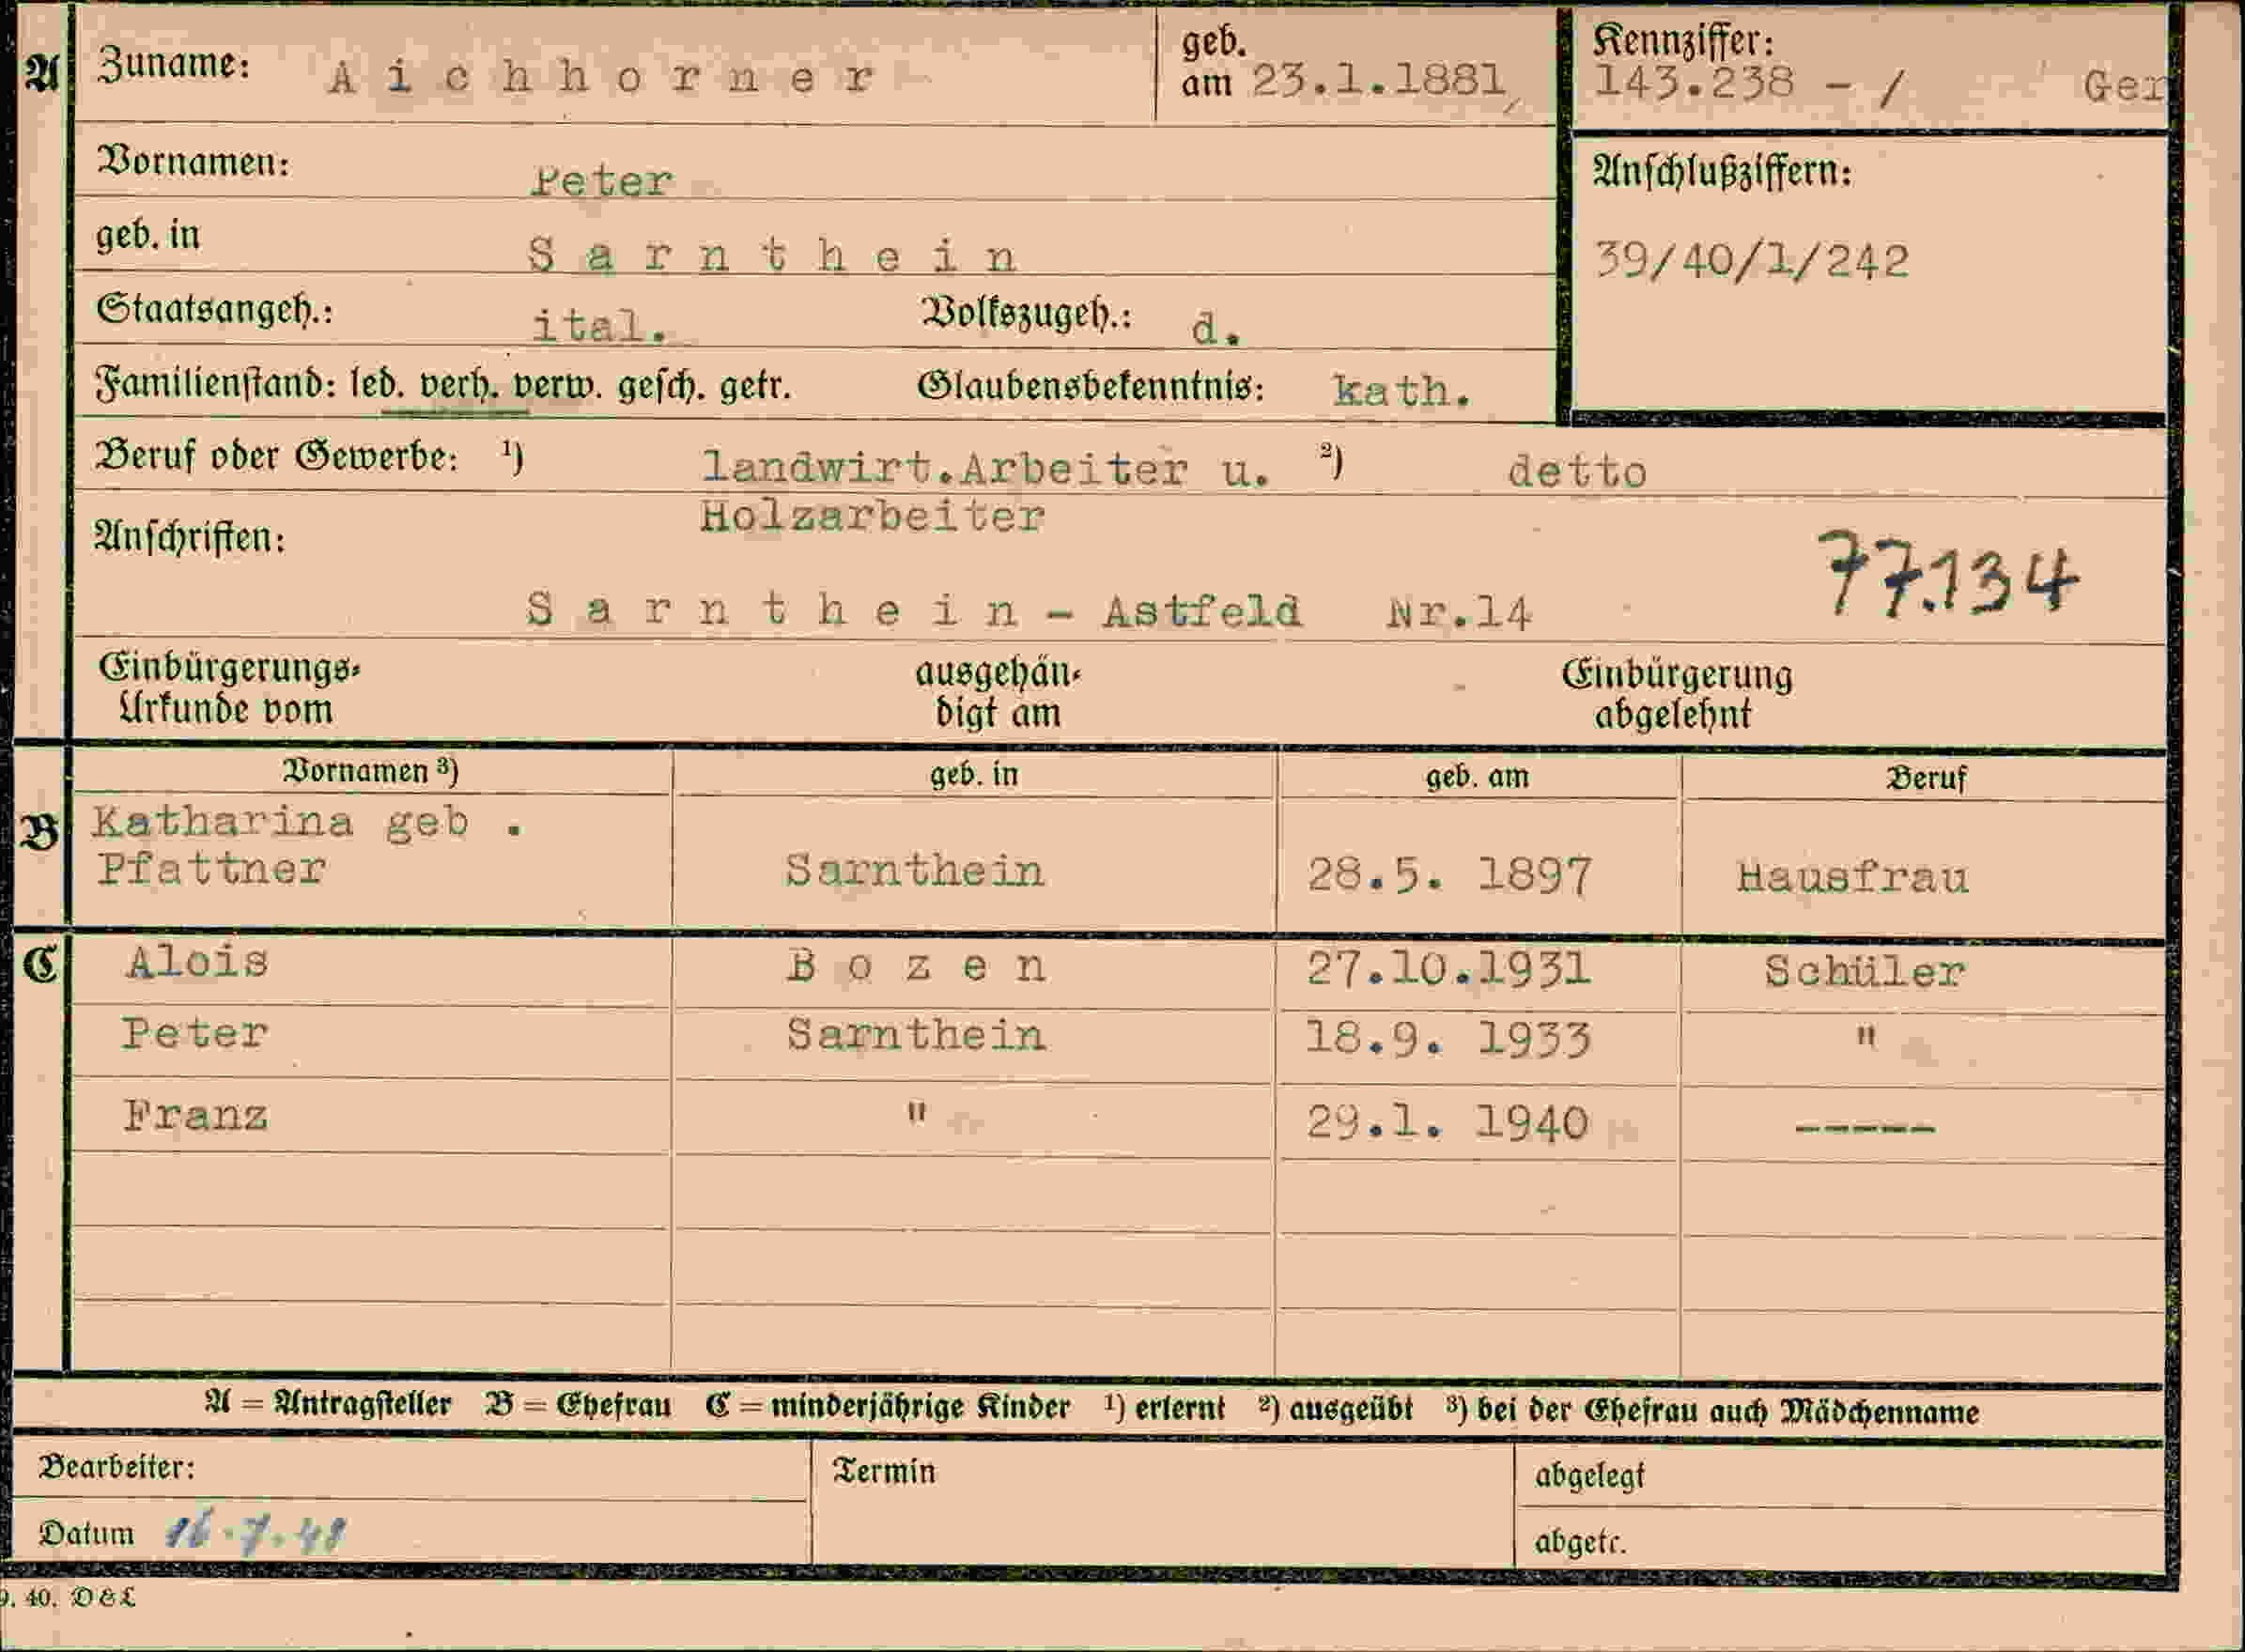 A Zuname: Aichhorner geb. am 23.1.1881, Kennziffer: 143.238 - / Ger
Vornamen: Peter
Anschlußziffern:
geb. in Sarnthein
39/40/1/242
Staatsangeh.: ital. Volkszugeh.: d.
Familienstand: led. verh. verw. gesch. getr. Glaubensbekenntnis: kath.
Beruf oder Gewerbe: ¹) landwirt.Arbeiter u. ²) detto
Holzarbeiter
Anschriften:
77.134
Sarnthein - Astfeld Nr.14
Einbürgerungs- ausgehän- Einbürgerung
Urkunde vom digt am abgelehnt
Vornamen ³) geb. in geb. am Beruf
B Katharina geb .
Pfattner Sarnthein 28.5. 1897 Hausfrau
C Alois Bozen 27.10.1931 Schüler
Peter Sarnthein 18.9. 1933 "
Franz " 29.1. 1940 -----
A = Antragsteller B = Ehefrau C = minderjährige Kinder ¹) erlernt ²) ausgeübt ³) bei der Ehefrau auch Mädchenname
Bearbeiter: Termin abgelegt
Datum 16.7.41
abgetr.
9. 40. D & L